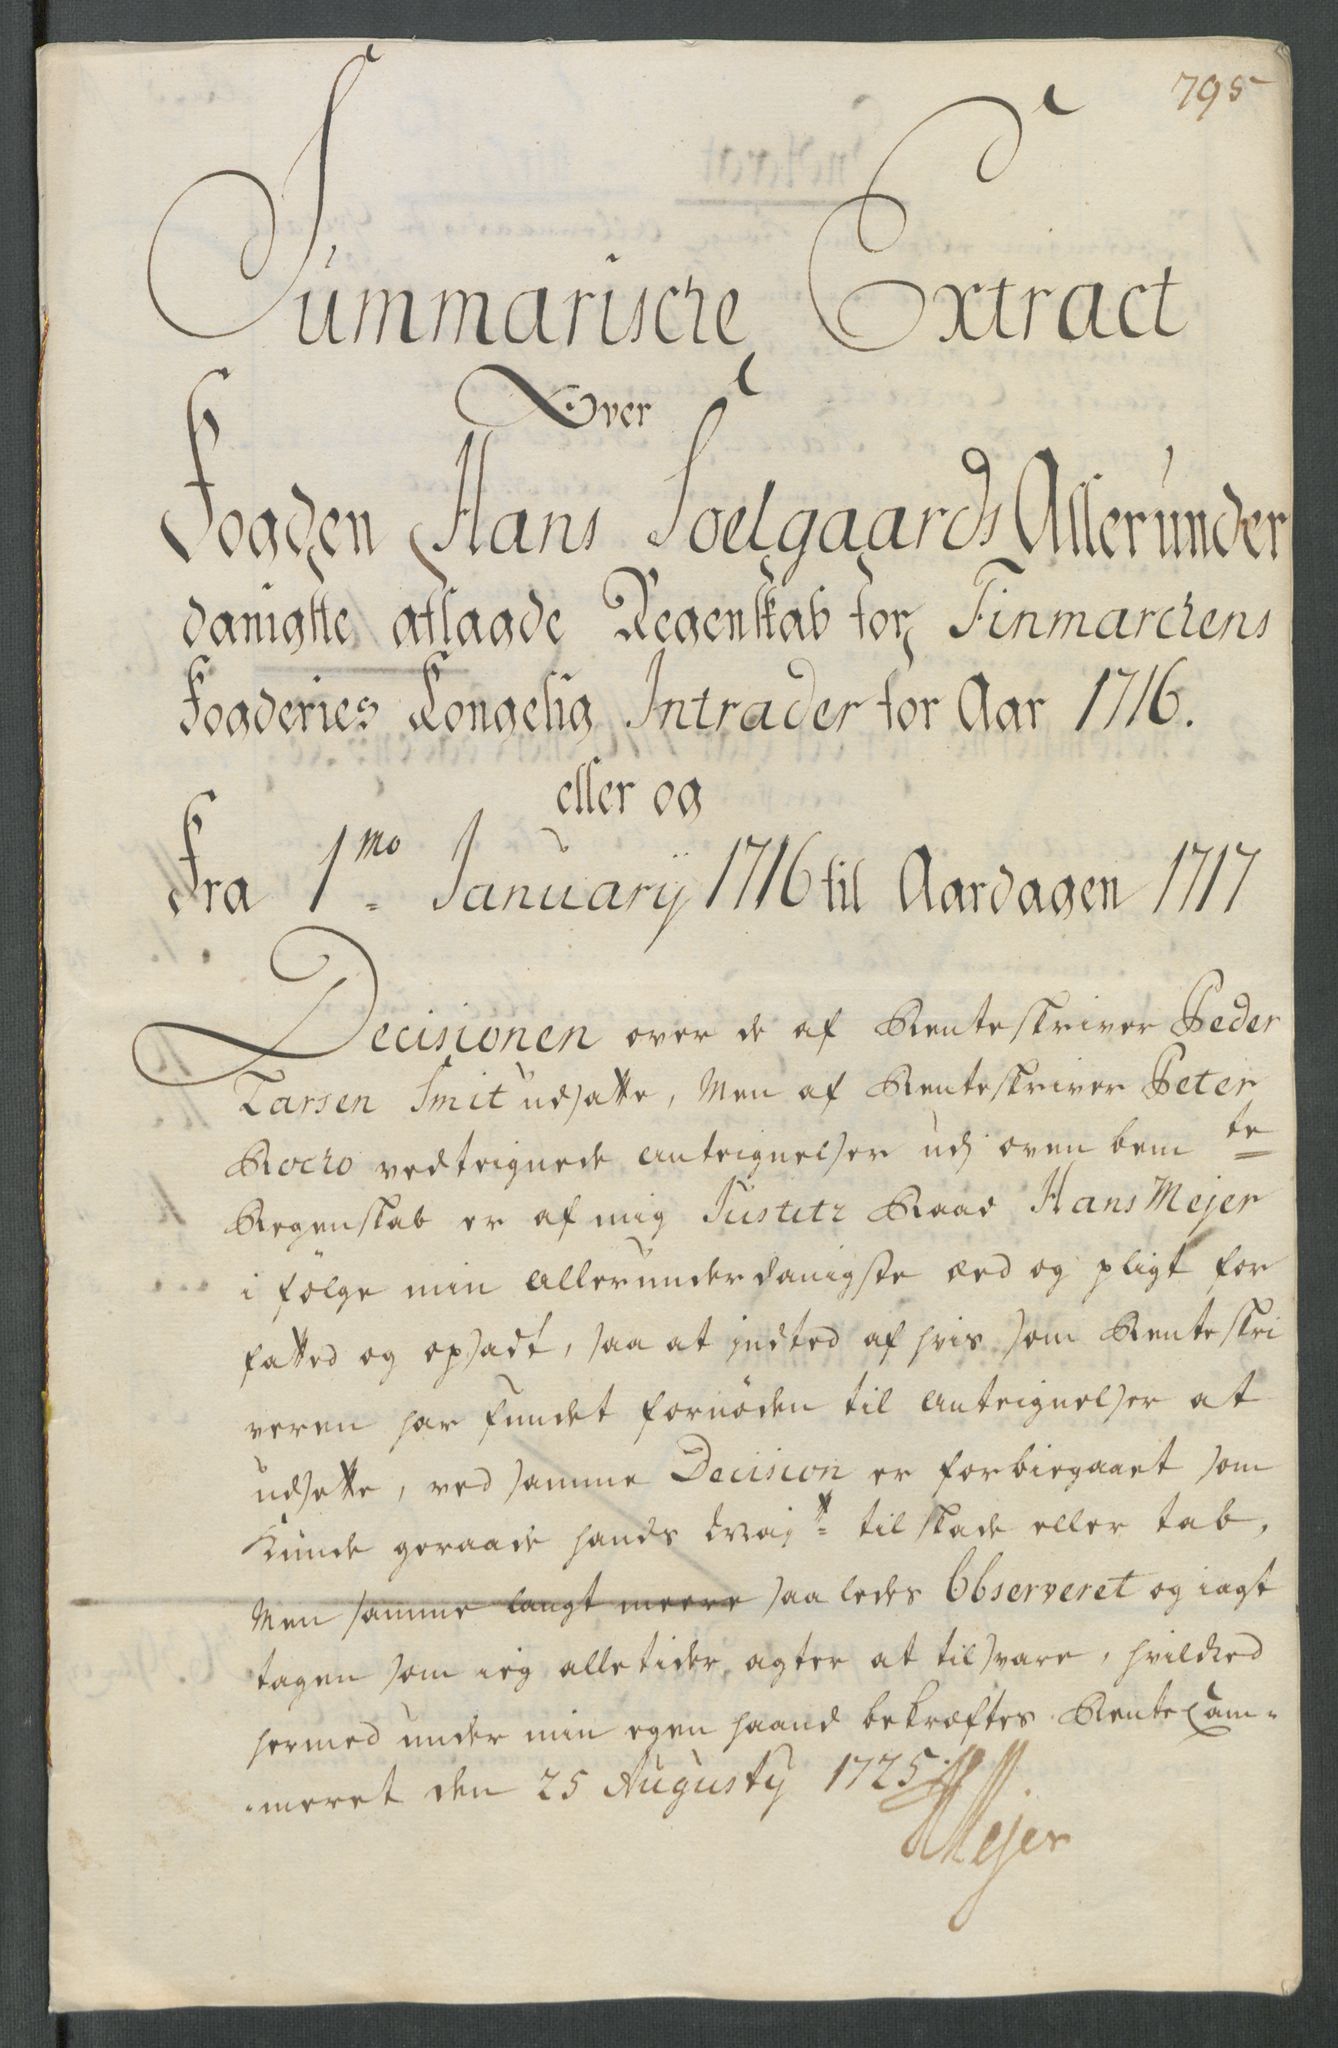 795
Summarische Extract
Over
Fogden Hans Soelgaards Allerunder
danigste aflagde Regenskab for Finmarchens
Fogderies Kongelig Intrader for Aar 1716.
eller og
Fra 1mo January 1716 til Aardagen 1717
Decisionen over de af Renteskriver Peder
Larsen Smit udsatte, Men af Renteskriver Peter
vedteignede Anteignelser udj oven bemte
Regenskab er af mig Justitz Raad Hans Mejer
i følge min Allerunderdanigste æed og pligt for
fatted og opsadt, saa at indted af hvis som Renteskri
veren har fundet fornöden til Anteignelser at
udsætte, ved samme Decision er forbiegaaet som
Kunde geraade hands Majtt til skade eller tab,
Men samme langt meere saaledes Observeret og iagt
tagen som ieg alletider agter at tilsvare, hvilched
hermed under min egen haand bekræftes. RenteCam-
meret den 25 Augusty 1725.
HMejer